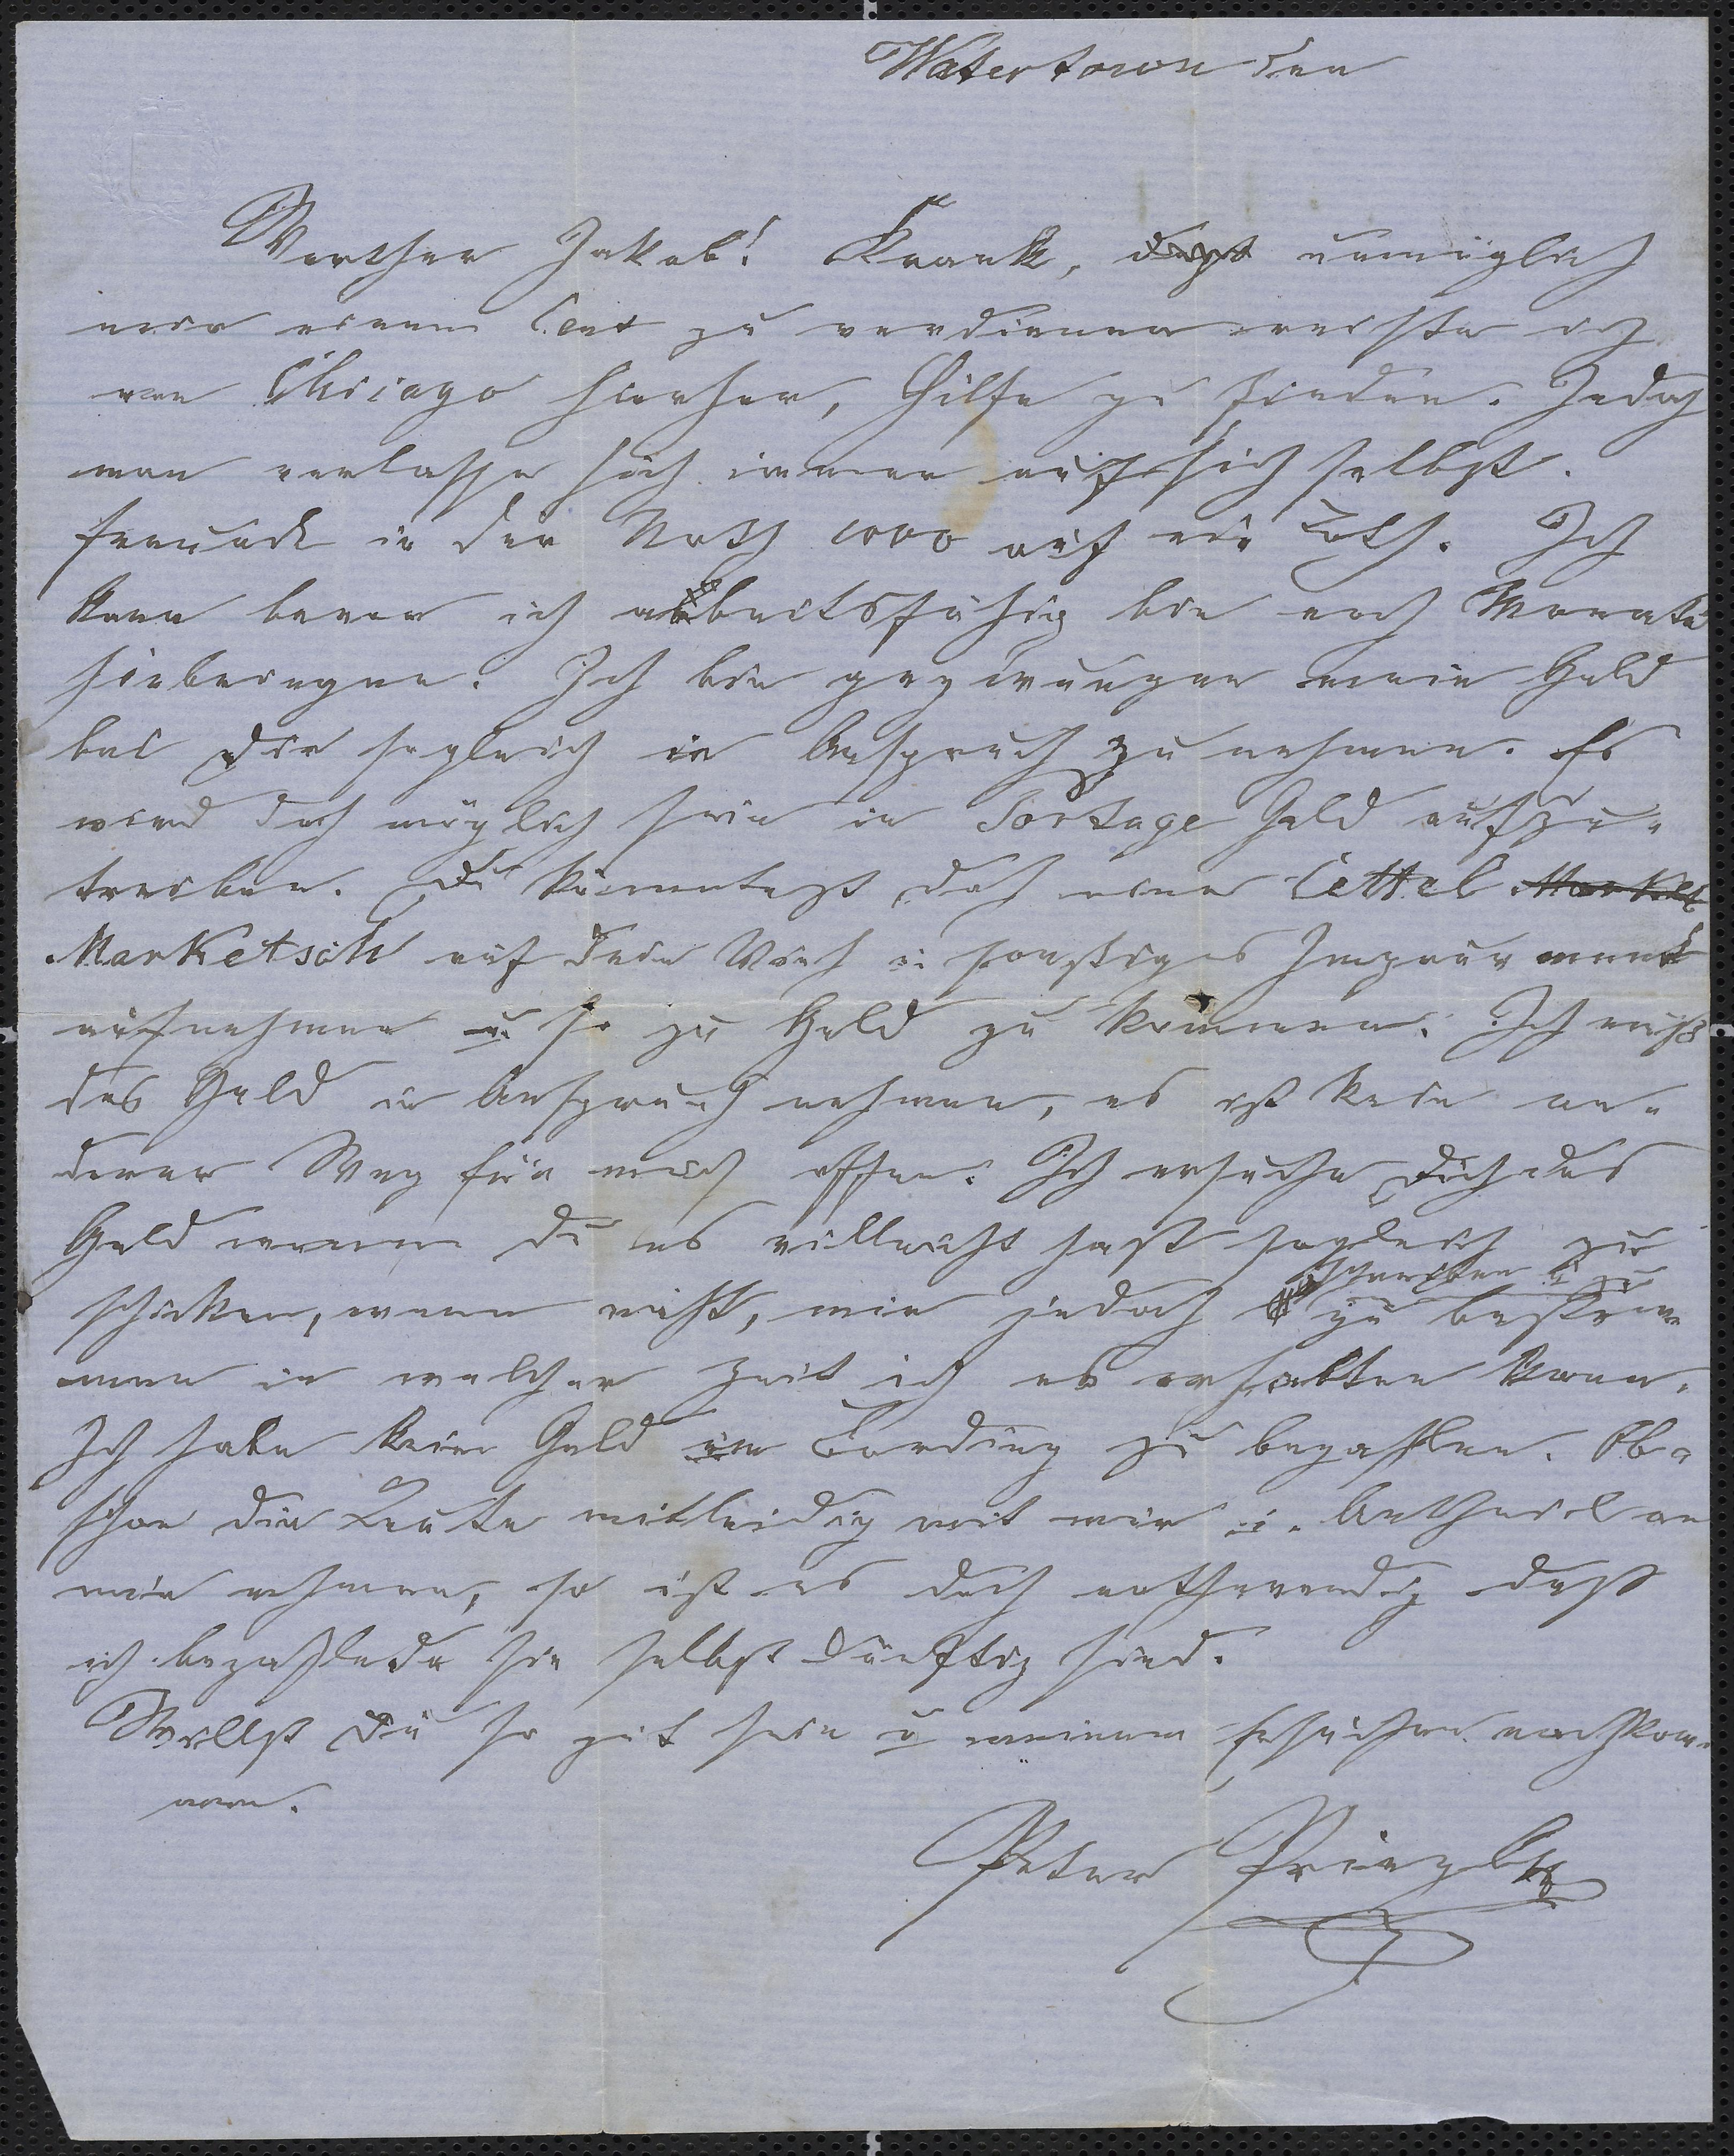 Watertown den
Werther Jakob! Krank, unmöglich
mir einen Cent zu verdienen reiste ich
von Chicago hierher, Hilfe zu finden. Jedoch
man verlasse sich immer auf sich selbst.
Freunde in der Noth 1000 auf ein Loth. Ich
kann bevor ich arbeitsfähig bin noch Monate
hinbringen. Ich bin gezwungen mein Geld
bei Dir sogleich in Anspruch zu nehmen. Es
wird doch möglich sein in Portage Geld aufzu-
treiben. Du könntest doch eine Cettel Market
Marketsch auf dein Vieh u. sonstiges Impruvment
aufnehmen u. so zu Geld zu kommen. Ich muß
das Geld in Anspruch nehmen, es ist kein an-
derer Weg für mich offen. Ich ersuche Dich das
Geld wenn Du es villeicht hast sogleich zu
schicken, wenn nicht, mir jedoch schreiben u zu bestim-
men in welcher Zeit ich es erhalten kann.
Ich habe kein Geld um Bording zu bezahlen. Ob-
schon die Leute mitleidig mit mir u. Antheil an
mir nehmen, so ist es doch nothwendig daß
ich bezahle da sie selbst dürftig sind.
Willst Du so gut sein u meinem Ersuchen nachkom-
men.
Peter